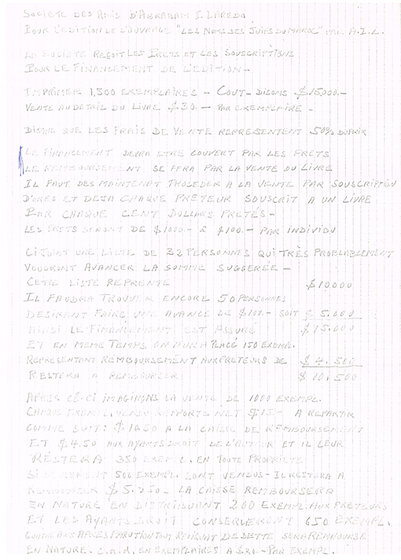 SOCIÉTÉ DES AMIS D'ABRAHAM I. LAREDO
POUR L'ÉDITION DE L'OUVRAGE "LES NOMS DES JUIFS DU MAROC" PAR A.I.L.
LA SOCIÉTÉ REÇOIT LES PRÊTS ET LES SOUSCRIPTIONS
POUR LE FINANCEMENT DE L'ÉDITION -
IMPRIMER 1,500 EXEMPLAIRES - COÛT - DISONS $15,000 -
VENTE AU DÉTAIL DU LIVRE $30 - PAR EXEMPLAIRE -
DISONS QUE LES FRAIS DE VENTE REPRÉSENTENT 50% DU PRIX
LE FINANCEMENT DEVRA ÊTRE COUVERT PAR LES PRÊTS
LE REMBOURSEMENT SE FERA PAR LA VENTE DU LIVRE
IL FAUT DES MAINTENANT PROCEDER A LA VENTE PAR SOUSCRIPTION
D'ORES ET DEJA CHAQUE PRÊTEUR SOUSCRIT A UN LIVRE
PAR CHAQUE CENT DOLLARS PRÊTÉS -
LES PRÊTS SERONT DE $1000 - À $100 - PAR INDIVIDU
CI JOINT UNE LISTE DE 22 PERSONNES QUI TRÈS PROBABLEMENT
VOUDRONT AVANCER LA SOMME SUGGÉRÉE -
CETTE LISTE REPRENTE $10000
IL FAUDRA TROUVER ENCORE 50 PERSONNES
DÉSIRANT FAIRE UNE AVANCE DE $100 - SOIT $5.000
AINSI LE FINANCEMENT EST ASSURÉ $15.000
ET EN MÊME TEMPS ON AURA PLACÉ 150 EXEMPL.
REPRÉSENTANT REMBOURSEMENT AUX PRÊTEURS DE $4.500
RESTERA A REMBOURSER $10.500
APRÈS CECI IMAGINONS LA VENTE DE 1000 EXEMPL.
CHAQUE EXEMPL. VENDU RAPPORTE NET $15 - A REPARTIR
COMME SUIT: $10.50 A LA CAISSE DE REMBOURSEMENT
ET $4.50 AUX AYANTS DROIT DE L'AUTEUR ET IL LEUR
RESTERA 350 EXEMPL. EN TOUTE PROPRIÉTÉ
SI SEULEMENT 500 EXEMPL. SONT VENDUS - IL RESTERA A
REMBOURSER $5.250. LA CAISSE REMBOURSERA
EN NATURE EN DISTRIBUANT 200 EXEMPL. AUX PRÊTEURS
ET LES AYANTS DROIT CONSERVERONT 650 EXEMPL.
DETTE SERA REMBOURSÉE
EN NATURE. C.A.D. EN EXEMPLAIRES A $30 - PAR EXEMPL.